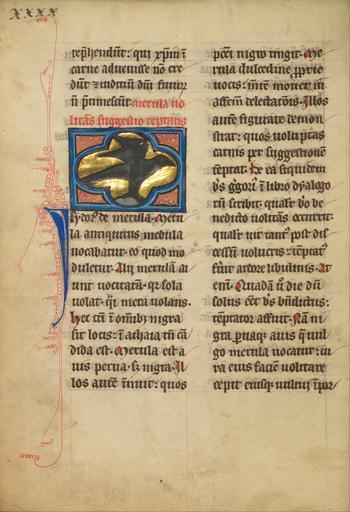 XXXX
rep̄hendūt: qui xp̄m ī
carne aduenisse nō cre
dūt ⁊ iudiciū dn̄i futuri
n̄ ꝑtimescūt merula uo
litās suggestio tēptatiōis
Isydorꝰ de merula. Meru
la antiquitus medula
uocabatur eo quod mo
duletur. Alij merulā ai
unt uocitatā q̄ꝛ sola
uolat q̄si mera uolans.
hec cū ī omībꝫ nigra
sit locis: ī achaia tn̄ cā
dida est. Merula est a
uis parua sꝫ nigra. Il
los autē īnuit: quos
pctī nigredo tingit. Me
rula dulcedine ꝓprie
uocis: mētē mouet in
affectū delectatōis. Illos
autē figurate demon
strat: quos uoluptas
carnis per suggestionē
tēptat. De ea siquidem
bs̄ ḡgori ī libro dyalogo
rū scribit: qualit̄ bō be
nedicto uolitās occurrit:
qualit̄ uir tantꝰ post dis
cessū uolucris: tēptatꝰ
fuit ardore libidinis. Ait
enī. Quadā ū die dū
solus eēt bs̄ bn̄dictus:
tēptator affuit. Nā ni
gra paruaqꝫ auis q̄ uul
go merula uocatur: cir
ca eius faciē uolitare
cepit eiusqꝫ uultui īpor